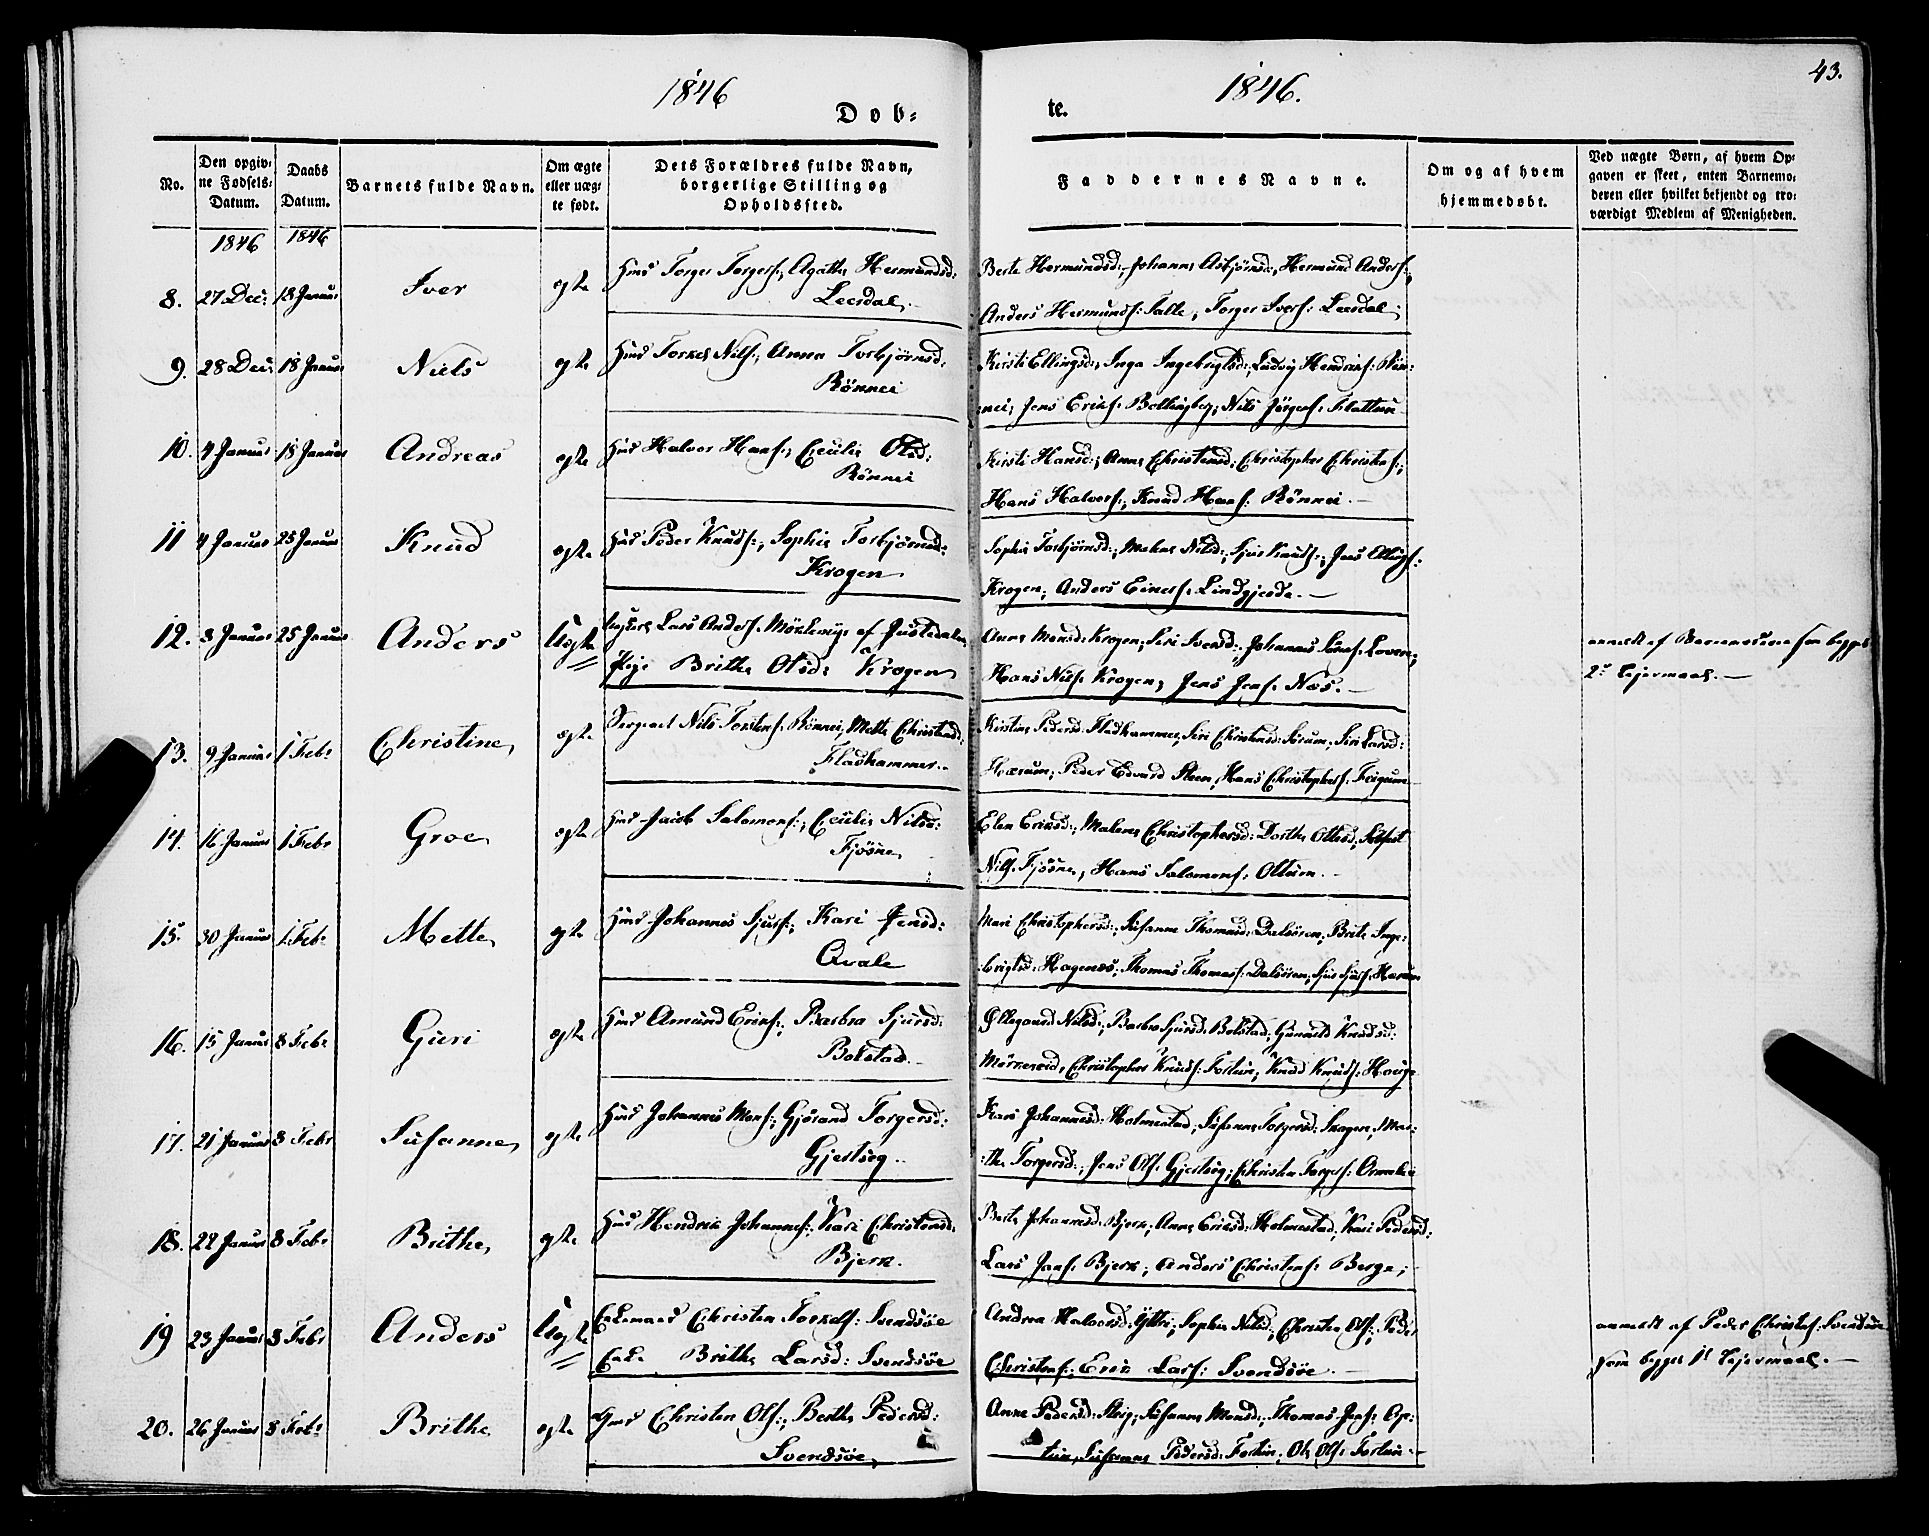 1846
1846.
43.
Døb-
te.
No.
Den opgiv-
ne Fødsels-
Datum.
Daabs
Datum.
Barnets fulde Navn.
Om ægte
eller uæg-
te født.
Dets Forældres fulde Navn,
borgerlige Stilling og
Opholdssted.
Faddernes Navne.
Om og af hvem
hjemmedøbt.
Ved uægte Børn, af hvem Op-
gaven er skeet, enten Barnemo-
deren eller hvilket bekjendt og tro-
værdigt Medlem af Menigheden.
1846
1846
8. 27 Dec: 18 Januar Iver egte Hmd Torger Torgers:, Agathe Hermundsd:
Leerdal.
Berte Hermundsd:, Johanne Asbjørnsd:, Hermund Anders:,
Anders Hermunds: Talle, Torger Ivers: Leerdal;
9. 28 Dec: 18 Januar Niels egte Hmd Torkel Nils:, Anna Torbjørnsd:
Rönnei
Kirsti Ellingsd:, Inga Ingebrigtsd:, Ludvig Hendriks: Rön-
nei; Jens Eriks: Bollingberg, Nils Jörgens: Flattun
10. 4 Januar 18 Januar Andreas egte Hmd Halvor Hans:, Cecilie Olsd:
Rönnei
Kirsti Hansd:, Anne Christensd:, Christopher Christens:,
Hans Halvors:, Knud Hans: Rönnei.
11 4 Januar 25 Januar Knud egte Hmd Peder Knuds:, Sophie Torbjörnsd:
Krogen
Sophie Torbjörnsd:, Malene Nilsd:, Sjur Knuds:, Jens Ellings:
Krogen, Anders Einers: Lindgjerde.
12. 3 Januar 25 Januar Anders Uegte Lars Anders: af Justedalen
Pige Brithe Olsd: Krogen
Anne Monsd: Krogen, Siri Iversd:, Johannes
Hans Nils: Krogen, Jens Jens: Næs.
anmeldt af Barnemoderen som begges
2t Lejermaal.
13. 9 Januar 1 Febr Christine egte Sergeant Nils Torstens: Rönnei, Mette Christensd:
Fladhammer.
Kirsten Pedersd: Fladhammer, Siri Christensd: Siri Larsd:
Hærum, Peder Edvard Steen, Hans Christophers:
14. 16 Januar 1 Febr Groe egte Hmd Jacob Salomons:, Cecilie Nilsd:
Fjösne
Elen Eriksd:, Malene Christophersd: Dorthe Ottesd,
Nils: Fjösne, Hans Salomons: Ottum.
15. 30 Januar 1 Febr Mette egte Hmd Johannes Sjurs:, Kari Jensd:
Qvale
Mari Christophersd:, Susanne Thomasd: Dalsören, Brite Inge-
brigtsd: Hagenes, Thomas Thomas: Dalsören, Sjur Sjurs: Hærum
16. 15 Januar 8 Febr Guri egte Hmd Amund Eriks:, Barbra Sjursd:
Bolstad.
Øllegaard Nilsd:, Barbro Sjursd: Bolstad, Gunnild Knudsd:
Mörkereid, Christopher Knuds: Fortun, Knud Knuds: Houge
17. 21 Januar 8 Febr Susanne egte Hmd Johannes Mons:, Gjörand Torgersd:
Gjertseg.
Kari Johannesd: Holmestad, Susanne Torgersd: Skagen, Mar-
the Torgersd:, Jens Ols: Gjertseg, Christen Torgers: Ormelid
18. 22 Januar 8 Febr Brithe egte Hmd Hendrik Johannes:, Kari Christensd:
Bjerk.
Berte Johannesd: Bjerk, Anne Eriksd: Holmestad, Kari Pedersd:
Lars Jens: Bjerk, Anders Christens: Berge;
19 23 Januar 8 Febr Anders Uegte Enkemand Christen Torkels: Svendsöe
Enke Brithe Larsd: Svendsöe
Andrea Halvorsd: Yttri, Sophie Nilsd:, Christen Ols:, Peder
Christens:, Erik Lars: Svendsöe.
anmeldt af Peder Christens: Svendsöe
som begges 1t Lejermaal.
20. 26 Januar 8 Febr Brithe egte Hmd Christen Ols:, Berthe Pedersd:
Svendsöe,
Anne Pedersd: Susanne Monsd:, Thomas Jens: Op-
tun, Susanne Pedersd: Fortun, Ole Ols: Fortun